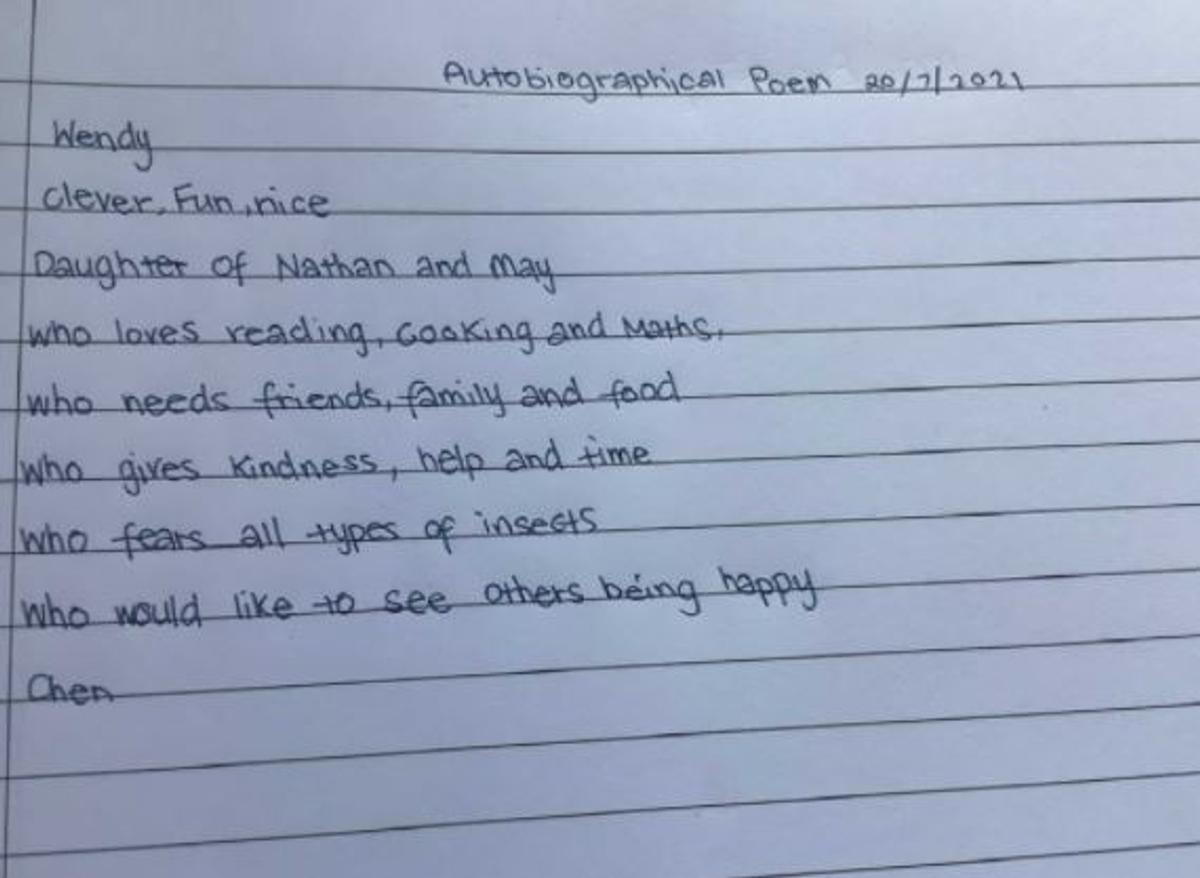 Autobiographical Poem 20/7/2021
Wendy
clever, Fun, nice
Daughter of Nathan and May
who loves reading, cooking and Maths,
who needs friends, family and food
who gives kindness, help and time
who fears all types of insects
who would like to see others being happy
Chen